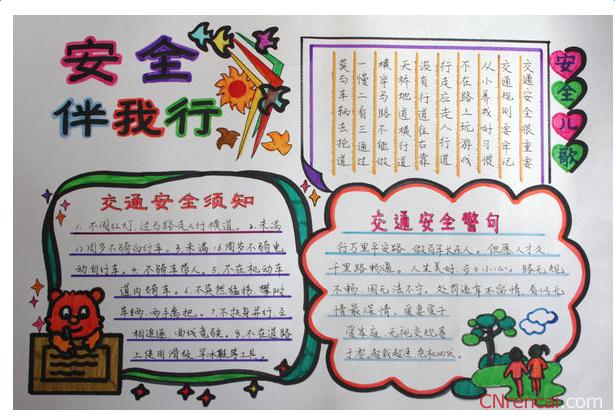 安全
伴我行
安全儿歌
交通安全很重要
交通规则要牢记
从小养成好习惯
不在路上玩游戏
行走应走人行道
没有行道往右靠
天桥地道横行道
横穿马路不能做
一慢二看三通过
莫与车辆去抢道
交通安全须知
1.不闯红灯,过马路走人行横道。2.未满
12周岁不骑自行车。3.未满16周岁不骑电
动自行车。4.不骑车带人。5.不在机动车
道内骑车。6.不突然猛拐、攀附
车辆、两手离把。7.不扶身并行、互
相追逐、曲线竞驶。8.不在道路
上使用滑板、旱冰鞋等工具。
交通安全警句
行万里平安路,做百年长乐人。但愿人长久,
千里路畅通。人生美好,步步小心。路无规
不畅,国无法不宁。处罚违章不留情,看似无
情最深情。爱妻爱子
爱家庭,无视交规等
于零。超载超速 危机四伏
CNrencai.com